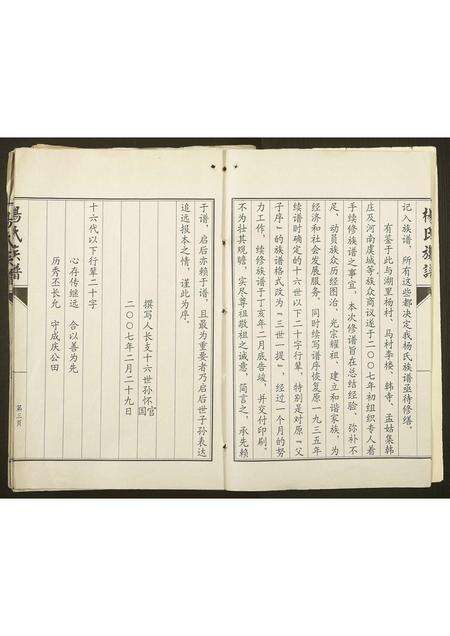 杨氏族谱
记入族谱，所有这些都决定我杨氏族谱亟待修缮。
有鉴于此与湖里杨村、马村李楼、韩寺、孟姑集韩
庄及河南虞城等族众商议遂于二〇〇七年初组织专人着
手续修族谱之事宜，本次修谱旨在总结经验、弥补不
足、动员族众历经图治、光宗耀祖、建立和谐家族，为
经济和社会发展服务。同时续写谱序恢复原一九三五年
续谱时确定的十六世以下二十字行辈，特别是对原「父
子序」的族谱格式改为「三世一提」，经过一个月的努
力工作，续修族谱于丁亥年二月底告竣，并交付印刷，
不为壮其观瞻，实尽尊祖敬祖之诚意，简言之，承先赖
于谱，启后亦赖于谱，且最为重要者乃启后世子孙表达
追远报本之情，谨此为序。
撰写人长支十六世孙怀官
二〇〇七年二月二十九日
十六代以下行辈二十字
心存传继远　合以善为先
历秀丕长允　守成庆公田
杨氏族谱
第三页